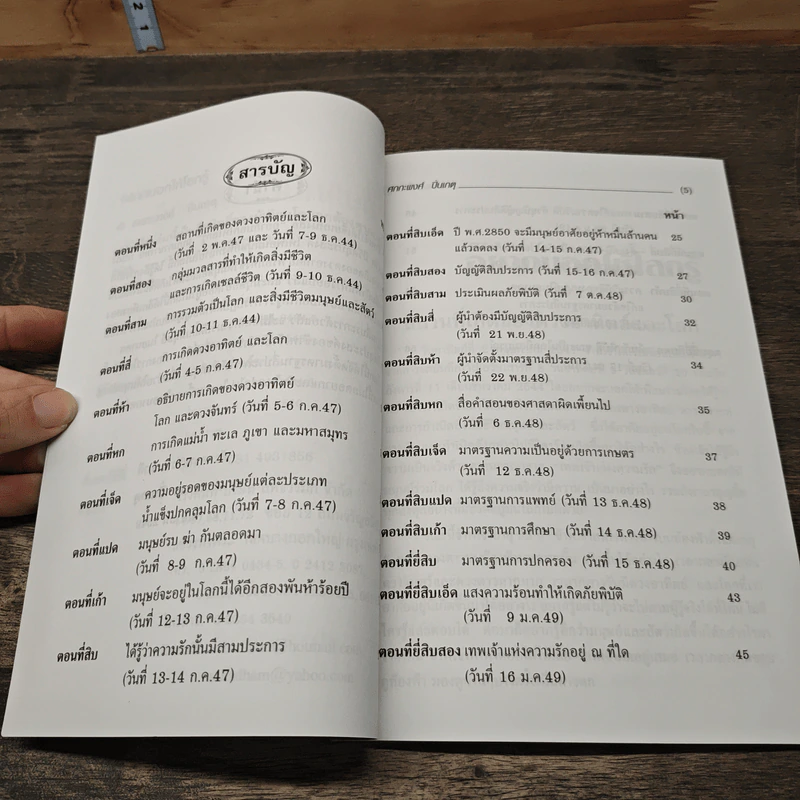 สารบัญ
ตอนที่หนึ่ง สถานที่เกิดของดวงอาทิตย์และโลก
(วันที่ 2 พ.ค.47 และ วันที่ 7-9 ธ.ค.44)
ตอนที่สอง กลุ่มมวลสารที่ทำให้เกิดสิ่งมีชีวิต
และการเกิดเซลล์ชีวิต (วันที่ 9-10 ธ.ค.44)
ตอนที่สาม การรวมตัวเป็นโลก และสิ่งมีชีวิตมนุษย์และสัตว์
(วันที่ 10-11 ธ.ค.44)
ตอนที่สี่ การเกิดดวงอาทิตย์ และโลก
(วันที่ 4-5 ก.ค.47)
ตอนที่ห้า อธิบายการเกิดของดวงอาทิตย์
โลก และดวงจันทร์ (วันที่ 5-6 ก.ค.47)
ตอนที่หก การเกิดแม่น้ำ ทะเล ภูเขา และมหาสมุทร
(วันที่ 6-7 ก.ค.47)
ตอนที่เจ็ด ความอยู่รอดของมนุษย์แต่ละประเภท
น้ำแข็งปกคลุมโลก (วันที่ 7-8 ก.ค.47)
ตอนที่แปด มนุษย์รบ ฆ่า กันตลอดมา
(วันที่ 8-9 ก.ค.47)
ตอนที่เก้า มนุษย์จะอยู่ในโลกนี้ได้อีกสองพันห้าร้อยปี
(วันที่ 12-13 ก.ค.47)
ตอนที่สิบ ได้รู้ว่าความรักนั้นมีสามประการ
(วันที่ 13-14 ก.ค.47)
ศกกะพงศ์ ปิ่นเกตุ (5)
หน้า
ตอนที่สิบเอ็ด ปี พ.ศ.2850 จะมีมนุษย์อาศัยอยู่ห้าหมื่นล้านคน 25
แล้วลดลง (วันที่ 14-15 ก.ค.47)
ตอนที่สิบสอง บัญญัติสิบประการ (วันที่ 15-16 ก.ค.47) 27
ตอนที่สิบสาม ประเมินผลภัยพิบัติ (วันที่ 7 ต.ค.48) 30
ตอนที่สิบสี่ ผู้นำต้องมีบัญญัติสิบประการ 32
(วันที่ 21 พ.ย.48)
ตอนที่สิบห้า ผู้นำจัดตั้งมาตรฐานสี่ประการ 34
(วันที่ 22 พ.ย.48)
ตอนที่สิบหก สื่อคำสอนของศาสดาผิดเพี้ยนไป 35
(วันที่ 6 ธ.ค.48)
ตอนที่สิบเจ็ด มาตรฐานความเป็นอยู่ด้วยการเกษตร 37
(วันที่ 12 ธ.ค.48)
ตอนที่สิบแปด มาตรฐานการแพทย์ (วันที่ 13 ธ.ค.48) 38
ตอนที่สิบเก้า มาตรฐานการศึกษา (วันที่ 14 ธ.ค.48) 39
ตอนที่ยี่สิบ มาตรฐานการปกครอง (วันที่ 15 ธ.ค.48) 40
ตอนที่ยี่สิบเอ็ด แสงความร้อนทำให้เกิดภัยพิบัติ 43
(วันที่ 9 ม.ค.49)
ตอนที่ยี่สิบสอง เทพเจ้าแห่งความรักอยู่ ณ ที่ใด 45
(วันที่ 16 ม.ค.49)